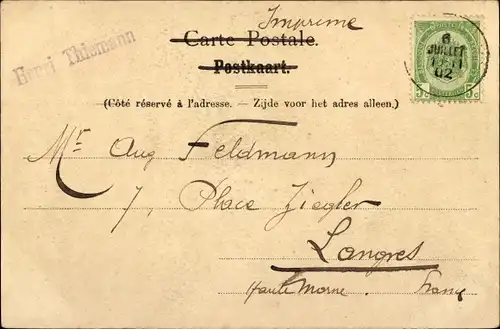 Imprimé
Carte Postale.
Postkaart.
Henri Thiemann
(Côté réservé à l'adresse. — Zijde voor het adres alleen.)
6
JUILLET
02
5c 5c
Mr Aug Feldmann
7, Place Ziegler
Langres
Haute Marne. France